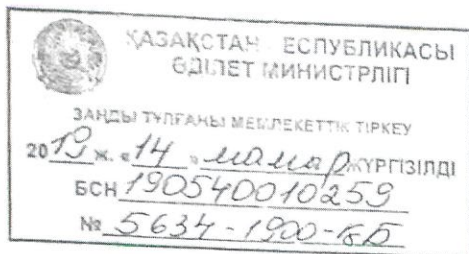 ҚАЗАҚСТАН ЕСПУБЛИКАСЫ
ӘДІЛЕТ МИНИСТРЛІГІ
ЗАҢДЫ ТҰЛҒАНЫ МЕМЛЕКЕТТІК ТІРКЕУ
2019 ж. «14» мамыр ЖҮРГІЗІЛДІ
БСН 190540010259
№ 5634-1900-